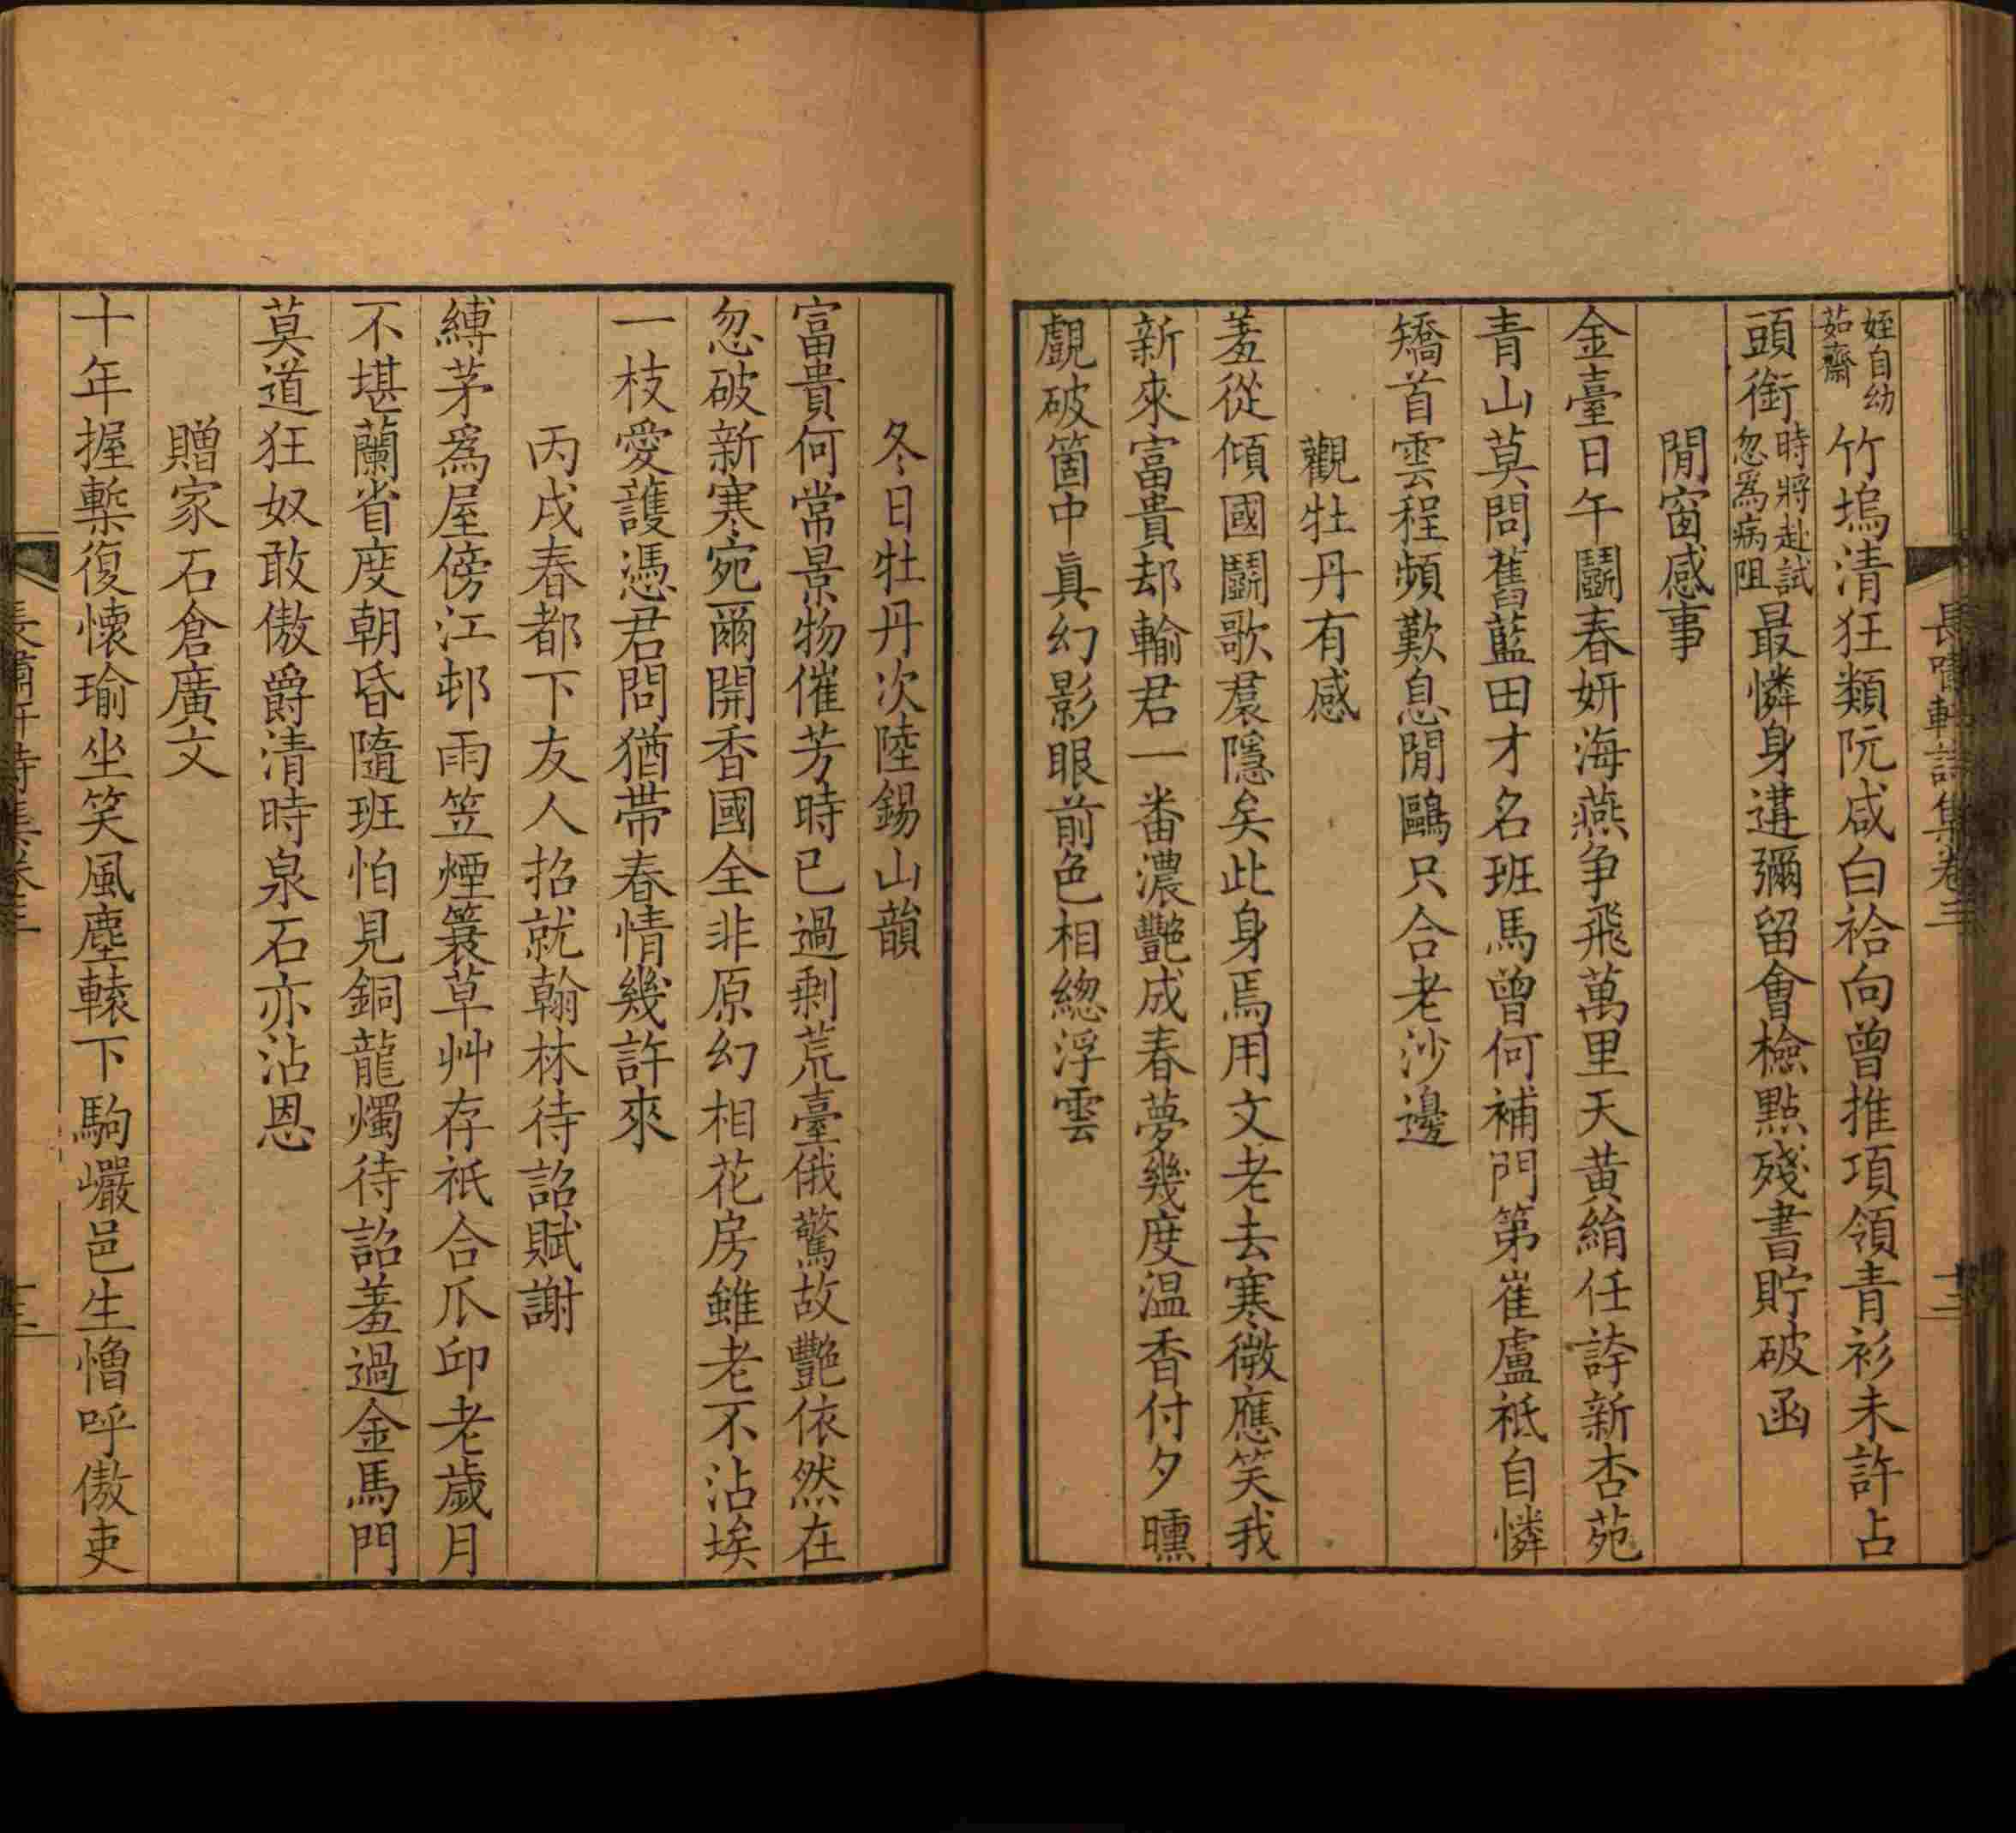 長嘯軒詩集卷三
十二
姪自幼茹齋竹塢清狂類阮咸白袷向曾推項領青衫未許占
頭銜時將赴試忽爲病阻最憐身遘彌留會檢點殘書貯破函
閒窗感事
金臺日午鬭春妍海燕争飛萬里天黄絹任誇新杏苑
青山莫問舊藍田才名班馬曾何補門第崔盧祗自憐
矯首雲程頻歎息閒鷗只合老沙邊
觀牡丹有感
羞從傾國鬭歌裠隱矣此身焉用文老去寒微應笑我
新來富貴却輸君一番濃艷成春夢幾度温香付夕曛
覷破箇中眞幻影眼前色相總浮雲
冬日牡丹次陸錫山韻
富貴何常景物催芳時已過剩荒臺俄驚故艷依然在
忽破新寒宛爾開香國全非原幻相花房雖老不沾埃
一枝愛護憑君問猶帶春情幾許來
丙戌春都下友人招就翰林待詔賦謝
縛茅爲屋傍江邨雨笠煙簑草艸存祇合爪卬老歲月
不堪蘭省度朝昏隨班怕見銅龍燭待詔羞過金馬門
莫道狂奴敢傲爵清時泉石亦沾恩
贈家石倉廣文
十年握槧復懷瑜坐笑風塵轅下駒巖邑生憎呼傲吏
長嘯軒詩集卷三